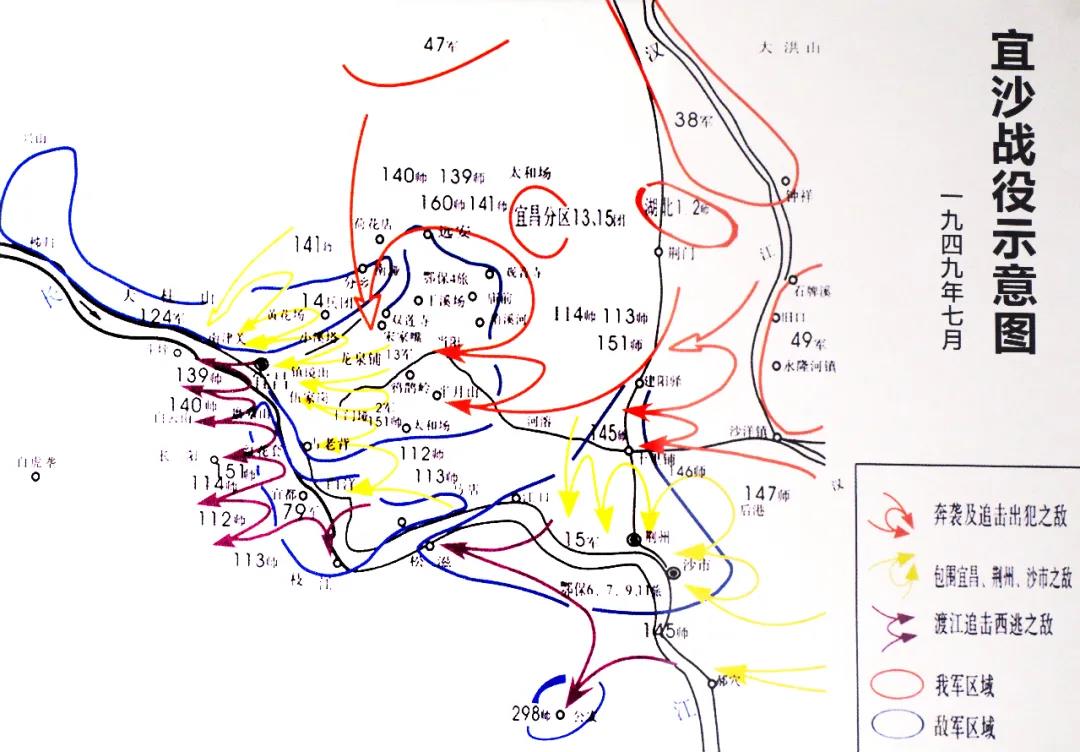 宜沙战役示意图
一九四九年七月
47军
汉
大洪山
38军
兴山
140师 139师 太和场
160师 141师
宜昌分区13.15团
湖北1 2师
钟祥
荷花店
远安
141师
荆门
江
鄂保4旅
观音寺
石牌溪
14兵团
干溪场
大桂山
124军
黄花场
双莲寺
114师 113师
旧口
南津关
小溪塔
宋家嘴
151师
49军
龙泉铺
13军
当阳
永隆河镇
139师
镇境山
鸦鹊岭
建阳驿
140师
伍家岗
2军
151师
太和场
河溶
145师
沙洋镇
白虎垄
古老背
112师
151师
114师
113师
146师
147师
后港
宜都
79军
江口
112师
15军
荆州
113师
枝江
松滋
沙市
鄂保6、7、9.11旅
145师
郝穴
298师
江
奔袭及追击出犯之敌
包围宜昌、荆州、沙市之敌
渡江追击西逃之敌
我军区域
敌军区域